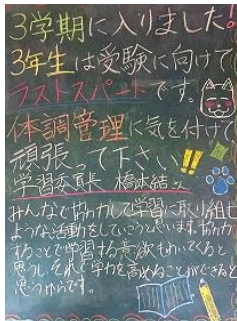 3学期に入りました!
3年生は受験に向けて
ラストスパートです。
体調管理に気を付けて
頑張って下さい!!
学習委員長 橋本結さん
みんなで協力して学習に取り組む
ような活動をしていこうと思います。協力
することで学習する意欲もわいてくると
思うし、それで学力を高めることができると
思うからです。